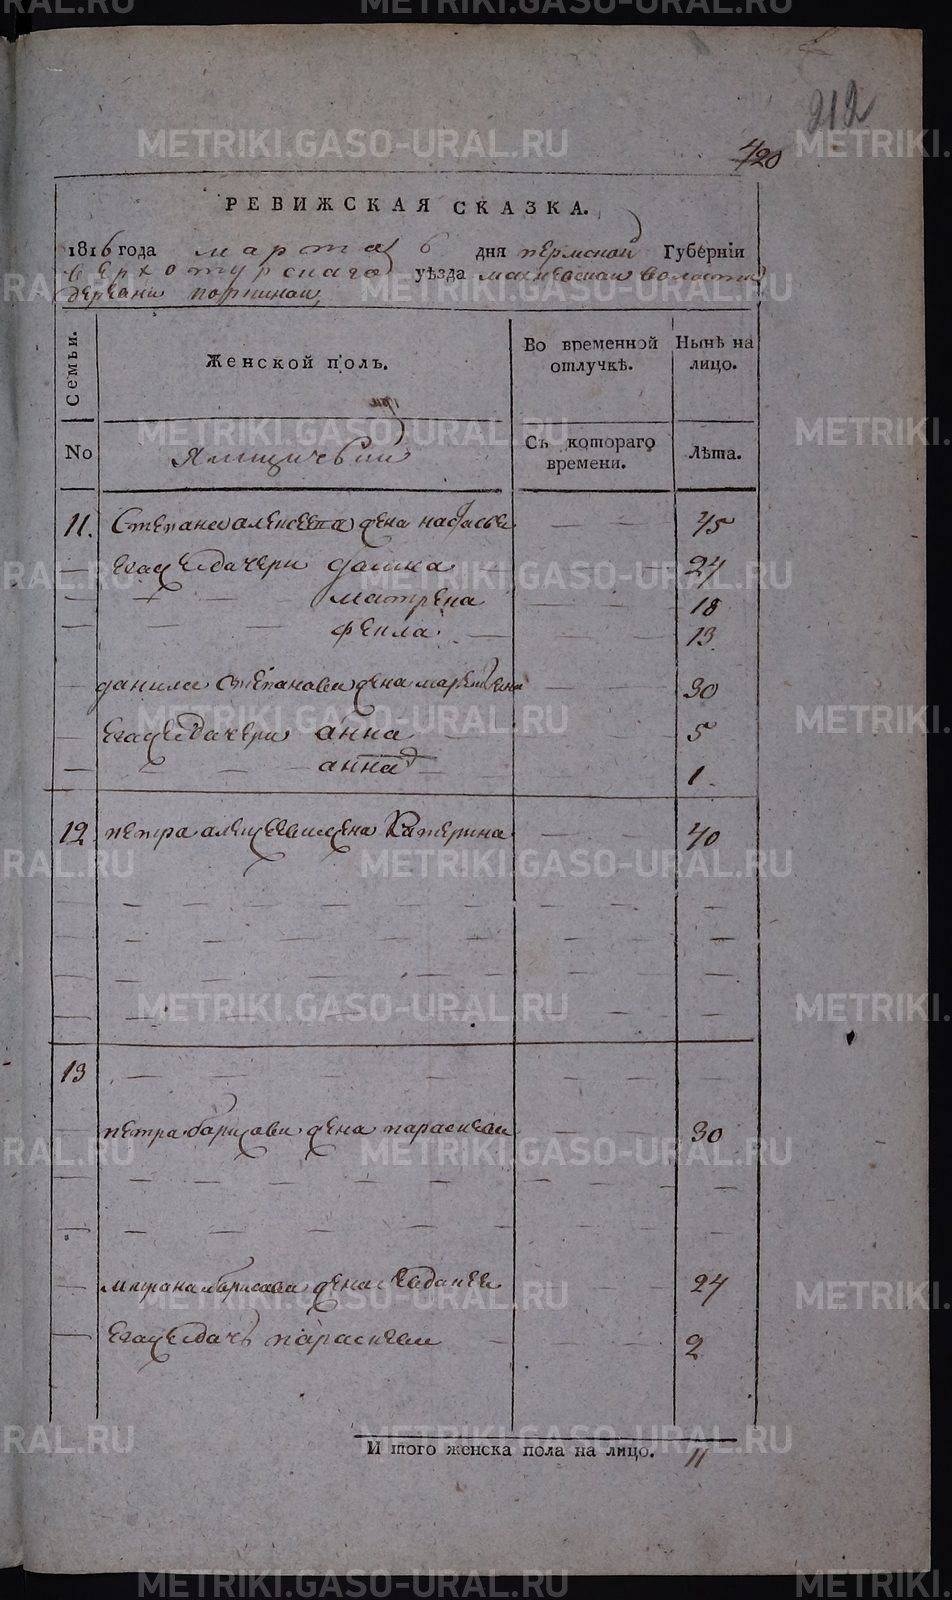 212
420
РЕВИЖСКАЯ СКАЗКА.
1816 года марта 6 дня пермской Губернїи
верхотурскаго уѣзда махневскаи воласти
деревни
Семьи.
Женской полъ.
Во временной отлучкѣ.
Нынѣ на лицо.
No
Ямщичьи
Съ котораго времени.
Лѣта.
11. Степана алексеева жена настасья — — 45
— егажедачери домна — — 24
— — — матрена — — 18
— — — фекла — — 13.
данила степанова жена 30
— егажедачери анна — — 5
— — — анна — — 1.
12 петра алексеева жена Катерина — — 40
13 — — — — — —
— петра барисави жена параскева — — 30
барисава жена 24
— егажедачь параскева — — 2
И того женска пола на лицо. 11
METRIKI.GASO-URAL.RU